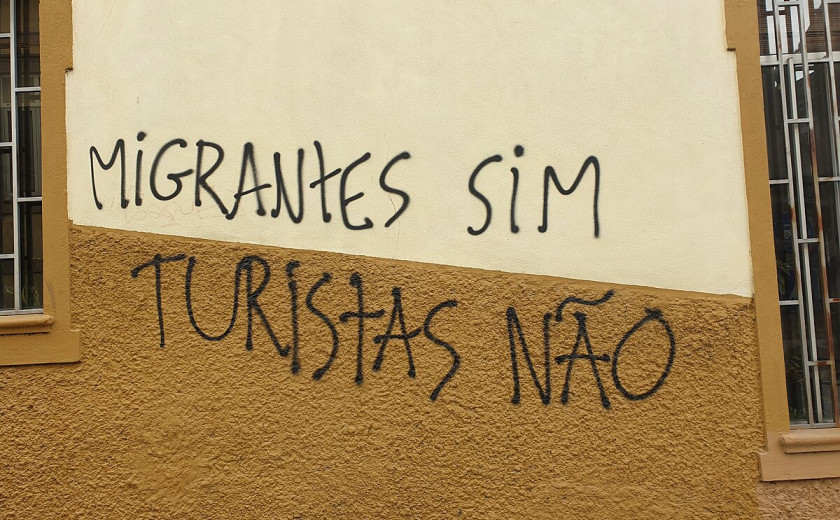 MiGRANtES SiM
TURiStAS NÃO